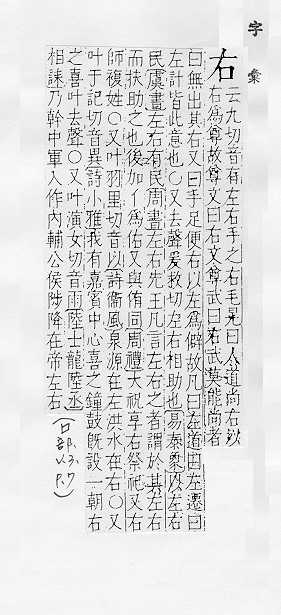 字彙
右
云九切音有左右手之右毛晃曰人道尚右以
右為尊故尊文曰右文尊武曰右武莫能尚者
曰無出其右又曰手足便右以左為僻故凡曰左道曰左遷曰
左計皆此意也〇又去聲爰救切左右相助也易泰象以左右
民虞書左右有民周書左右先王凡言左右之者謂於其左右
而扶助之也後加亻為佑又與侑同周禮大祝享右祭祀又右
師複姓〇又叶羽里切音以詩衞風泉源在左淇水在右〇又
叶于記切音異詩小雅我有嘉賓中心喜之鐘鼓旣設一朝右
之喜叶去聲〇又叶演女切音雨陸士龍陸丞
相誄乃幹中軍入作內輔公侯陟降在帝左右
(口部.3.7 P.7)